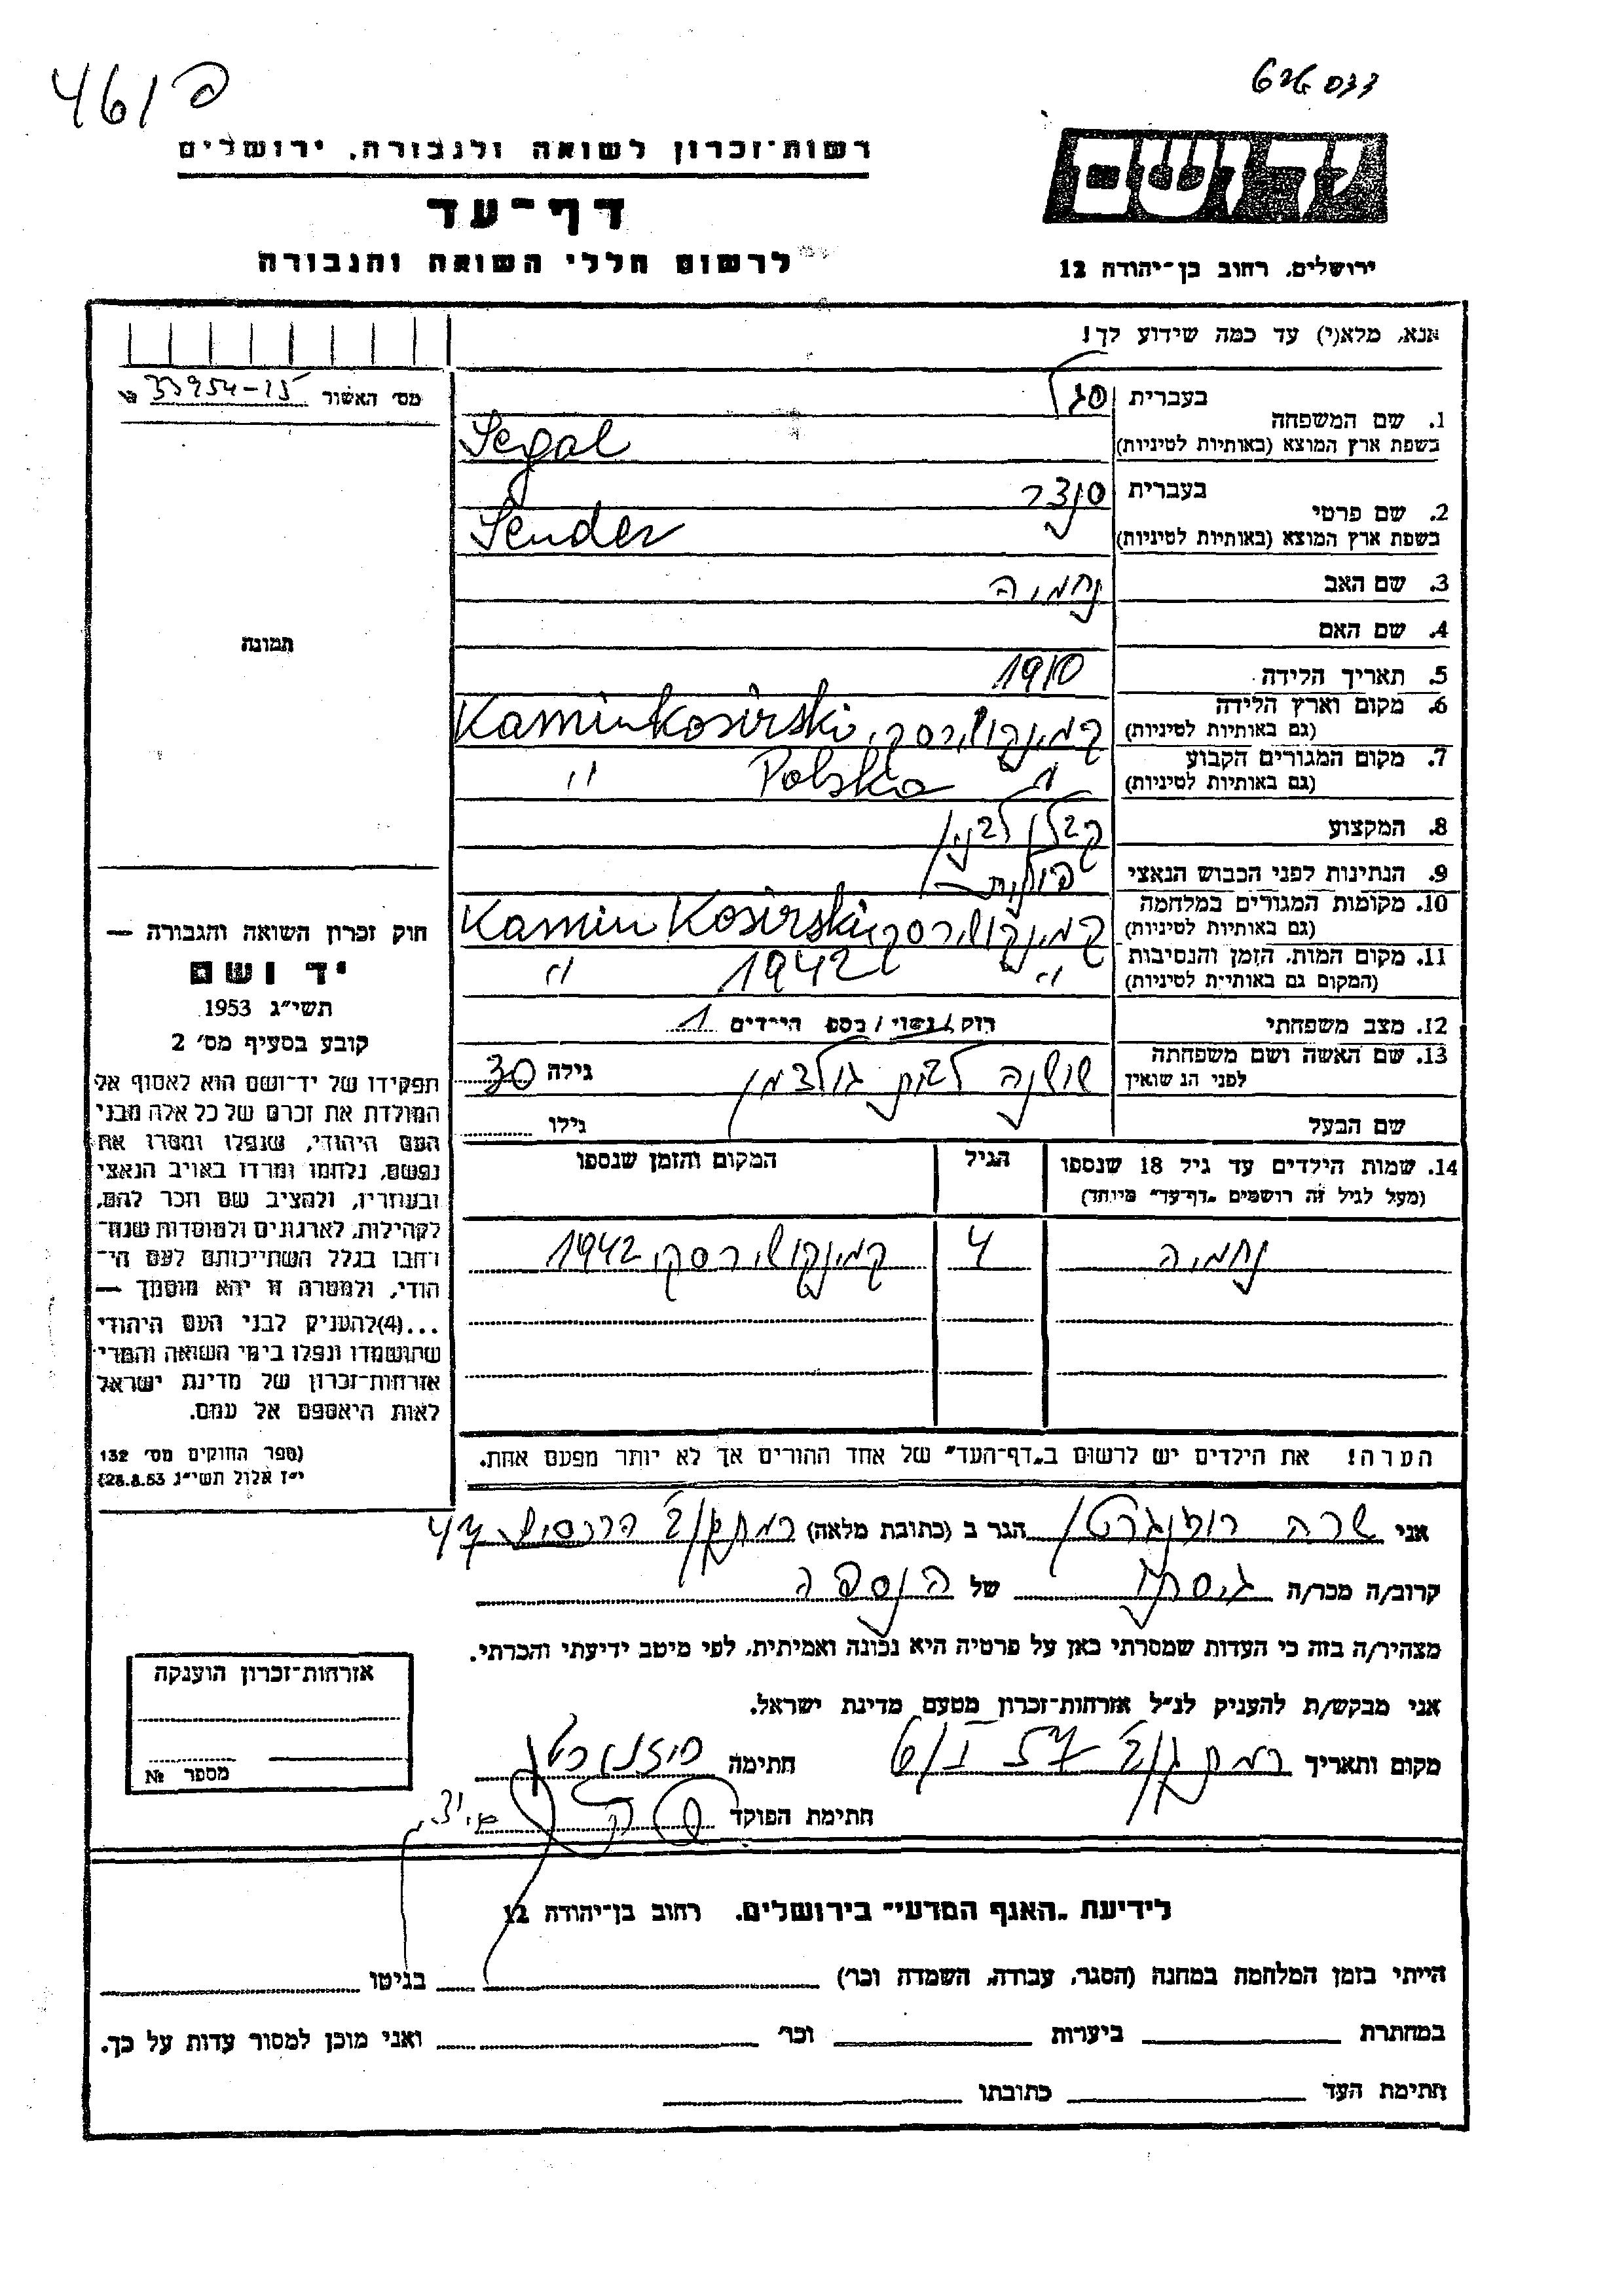 461 פ
רשות-זכרון לשואה ולגבורה, ירושלים
דף-עד
לרשום חללי השואה והגבורה
יד ושם
ירושלים, רחוב בן-יהודה 12
אנא, מלא(י) עד כמה שידוע לך!
מס' האשור 33954-15
תמונה
1. שם המשפחה
בעברית סגל
בשפת ארץ המוצא (באותיות לטיניות) Segal
2. שם פרטי
בעברית סנדר
בשפת ארץ המוצא (באותיות לטיניות) Sender
3. שם האב נחמיה
4. שם האם
5. תאריך הלידה 1910
6. מקום וארץ הלידה
(גם באותיות לטיניות) קמינקושירסקי Kaminkosirski
7. מקום המגורים הקבוע
(גם באותיות לטיניות) " Polska "
8. המקצוע קבלן לבנין
9. הנתינות לפני הכבוש הנאצי פולנית
10. מקומות המגורים במלחמה
(גם באותיות לטיניות) קמינקושירסקי Kamin Kosirski
11. מקום המות, הזמן והנסיבות
(המקום גם באותיות לטיניות) " 1942 "
12. מצב משפחתי רוק/נשוי/מספר הילדים 1
13. שם האשה ושם משפחתה
לפני הנשואין שושנה לבית גולצמן גילה 30
שם הבעל גילו
14. שמות הילדים עד גיל 18 שנספו
(מעל לגיל זה רושמים "דף-עד" מיוחד)
הגיל
המקום והזמן שנספו
נחמיה 4 קמינקושירסקי 1942
הערה! את הילדים יש לרשום ב"דף-העד" של אחד ההורים אך לא יותר מפעם אחת.
חוק זכרון השואה והגבורה —
יד ושם
תשי"ג 1953
קובע בסעיף מס' 2
תפקידו של יד-ושם הוא לאסוף אל
המולדת את זכרם של כל אלה מבני
העם היהודי, שנפלו ומסרו את
נפשם, נלחמו ומרדו באויב הנאצי
ובעוזריו, ולהציב שם וזכר להם,
לקהילות, לארגונים ולמוסדות שנח-
רבו בגלל השתייכותם לעם הי-
הודי, ולמטרה זו יהא מוסמך —
...(4)להעניק לבני העם היהודי
שהושמדו ונפלו בימי השואה והמרי
אזרחות-זכרון של מדינת ישראל
לאות היאספם אל עמם.
(ספר החוקים מס' 132
י"ז אלול תשי"ג 28.8.53)
אני שרה רוזנגרטן הגר ב (כתובת מלאה) רמת גן
קרוב/ה מכר/ה גיסתו של הנספה
מצהיר/ה בזה כי העדות שמסרתי כאן על פרטיה היא נכונה ואמיתית, לפי מיטב ידיעתי והכרתי.
אני מבקש/ת להעניק לנ"ל אזרחות-זכרון מטעם מדינת ישראל.
מקום ותאריך רמת גן חתימה רוזנגרטן
חתימת הפוקד
אזרחות-זכרון הוענקה
מספר №
לידיעת "האגף המדעי" בירושלים, רחוב בן-יהודה 12
הייתי בזמן המלחמה במחנה (הסגר, עבודה, השמדה וכו') בגיטו
במחתרת ביערות וכו' ואני מוכן למסור עדות על כך.
חתימת העד כתובתו